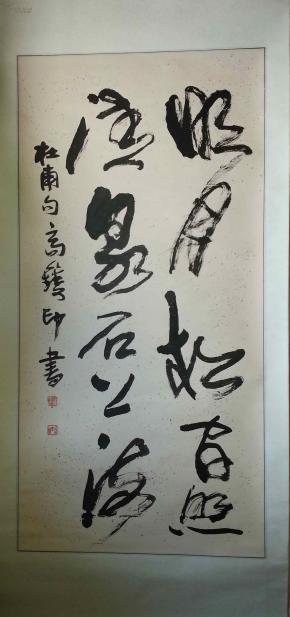 明月松间照
清泉石上流
杜甫句 高印書